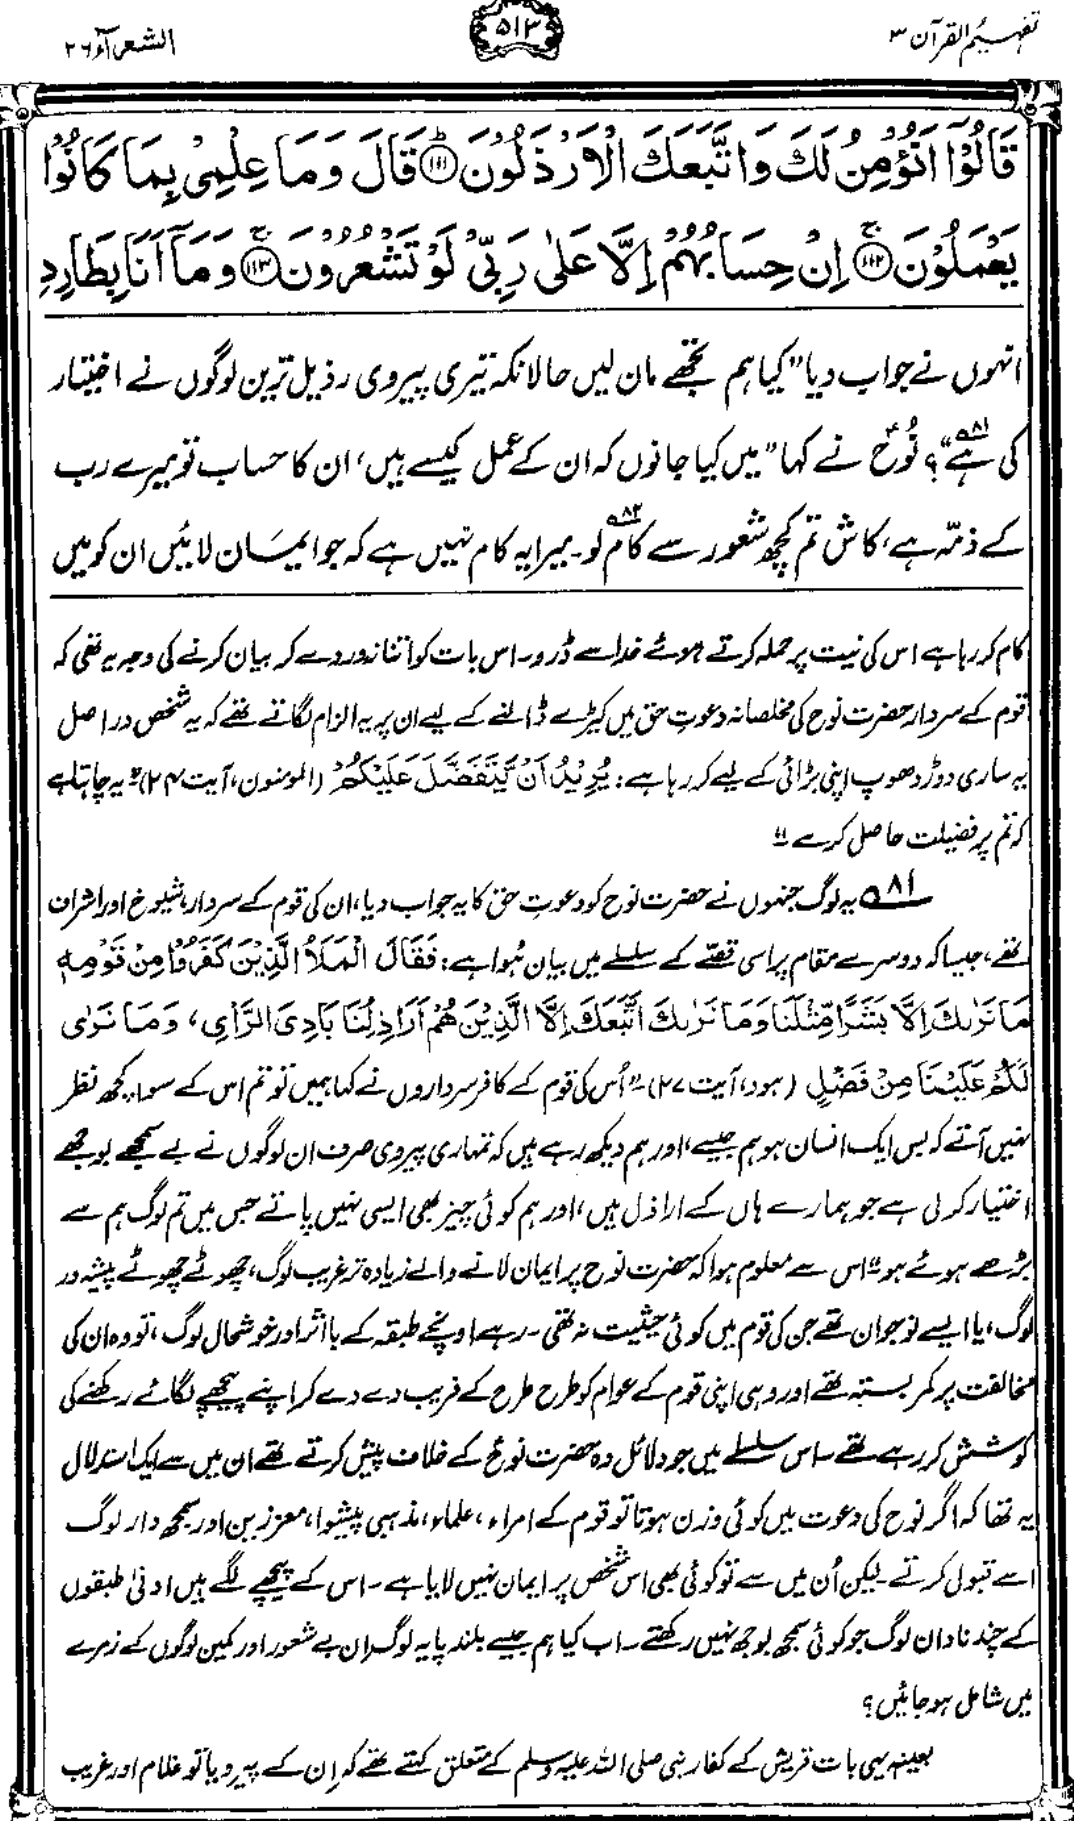 تفہیم القرآن ۳
۵۱۳
الشعرآء ۲۶
قَالُوْٓا اَنُؤْمِنُ لَكَ وَاتَّبَعَكَ الْاَرْذَلُوْنَ ؕ﴿۱۱۱﴾ قَالَ وَمَا عِلْمِيْ بِمَا كَانُوْا
يَعْمَلُوْنَ ۚ﴿۱۱۲﴾ اِنْ حِسَابُهُمْ اِلَّا عَلٰى رَبِّيْ لَوْ تَشْعُرُوْنَ ۚ﴿۱۱۳﴾ وَمَآ اَنَا بِطَارِدِ
انہوں نے جواب دیا ”کیا ہم تجھے مان لیں حالانکہ تیری پیروی رذیل ترین لوگوں نے اختیار
کی ہے“۸۱؟ نُوحؑ نے کہا ”میں کیا جانوں کہ ان کے عمل کیسے ہیں، ان کا حساب تو میرے رب
کے ذمّہ ہے، کاش تم کچھ شعور سے کام لو۸۲۔ میرا یہ کام نہیں ہے کہ جو ایمان لائیں ان کو میں
کام کر رہا ہے اس کی نیت پر حملہ کرتے ہوئے خدا سے ڈرو۔ اس بات کو اتنا زور دے کر بیان کرنے کی وجہ یہ تھی کہ
قوم کے سردار حضرت نوح کی مخلصانہ دعوتِ حق میں کیڑے ڈالنے کے لیے ان پر یہ الزام لگاتے تھے کہ یہ شخص دراصل
یہ ساری دوڑ دھوپ اپنی بڑائی کے لیے کر رہا ہے: يُرِيْدُ اَنْ يَّتَفَضَّلَ عَلَيْكُمْ (المومنون، آیت ۲۴) ”یہ چاہتا ہے
کہ تم پر فضیلت حاصل کرے“
۸۱؎ یہ لوگ جنہوں نے حضرت نوح کو دعوتِ حق کا یہ جواب دیا، ان کی قوم کے سردار، شیوخ اور اشراف
تھے، جیسا کہ دوسرے مقام پر اسی قصّے کے سلسلے میں بیان ہُوا ہے: فَقَالَ الْمَلَاُ الَّذِيْنَ كَفَرُوْا مِنْ قَوْمِهٖ
مَا نَرٰىكَ اِلَّا بَشَرًا مِّثْلَنَا وَمَا نَرٰىكَ اتَّبَعَكَ اِلَّا الَّذِيْنَ هُمْ اَرَاذِلُنَا بَادِىَ الرَّاْىِ، وَمَا نَرٰى
لَكُمْ عَلَيْنَا مِنْ فَضْلٍ (ہود، آیت ۲۷) ”اُس کی قوم کے کافر سرداروں نے کہا ہمیں تو تم اس کے سوا کچھ نظر
نہیں آتے کہ بس ایک انسان ہو ہم جیسے، اور ہم دیکھ رہے ہیں کہ تمہاری پیروی صرف ان لوگوں نے بے سمجھے بوجھے
اختیار کر لی ہے جو ہمارے ہاں کے اراذل ہیں، اور ہم کوئی چیز بھی ایسی نہیں پاتے جس میں تم لوگ ہم سے
بڑھے ہوئے ہو“ اس سے معلوم ہوا کہ حضرت نوح پر ایمان لانے والے زیادہ تر غریب لوگ، چھوٹے چھوٹے پیشہ ور
لوگ، یا ایسے نوجوان تھے جن کی قوم میں کوئی حیثیت نہ تھی۔ رہے اونچے طبقہ کے با اثر اور خوشحال لوگ، تو وہ ان کی
مخالفت پر کمر بستہ تھے اور وہی اپنی قوم کے عوام کو طرح طرح کے فریب دے دے کر اپنے پیچھے لگائے رکھنے کی
کوشش کر رہے تھے۔ اس سلسلے میں جو دلائل وہ حضرت نوح کے خلاف پیش کرتے تھے ان میں سے ایک استدلال
یہ تھا کہ اگر نوح کی دعوت میں کوئی وزن ہوتا تو قوم کے امراء، علماء، مذہبی پیشوا، معززین اور سمجھ دار لوگ
اسے قبول کرتے۔ لیکن اُن میں سے تو کوئی بھی اس شخص پر ایمان نہیں لایا ہے۔ اس کے پیچھے لگے ہیں ادنیٰ طبقوں
کے چند نادان لوگ جو کوئی سمجھ بوجھ نہیں رکھتے۔ اب کیا ہم جیسے بلند پایہ لوگ ان بے شعور اور کمین لوگوں کے زمرے
میں شامل ہو جائیں؟
بعینہٖ یہی بات قریش کے کفار نبی صلی اللہ علیہ وسلم کے متعلق کہتے تھے کہ اِن کے پیرو یا تو غلام اور غریب